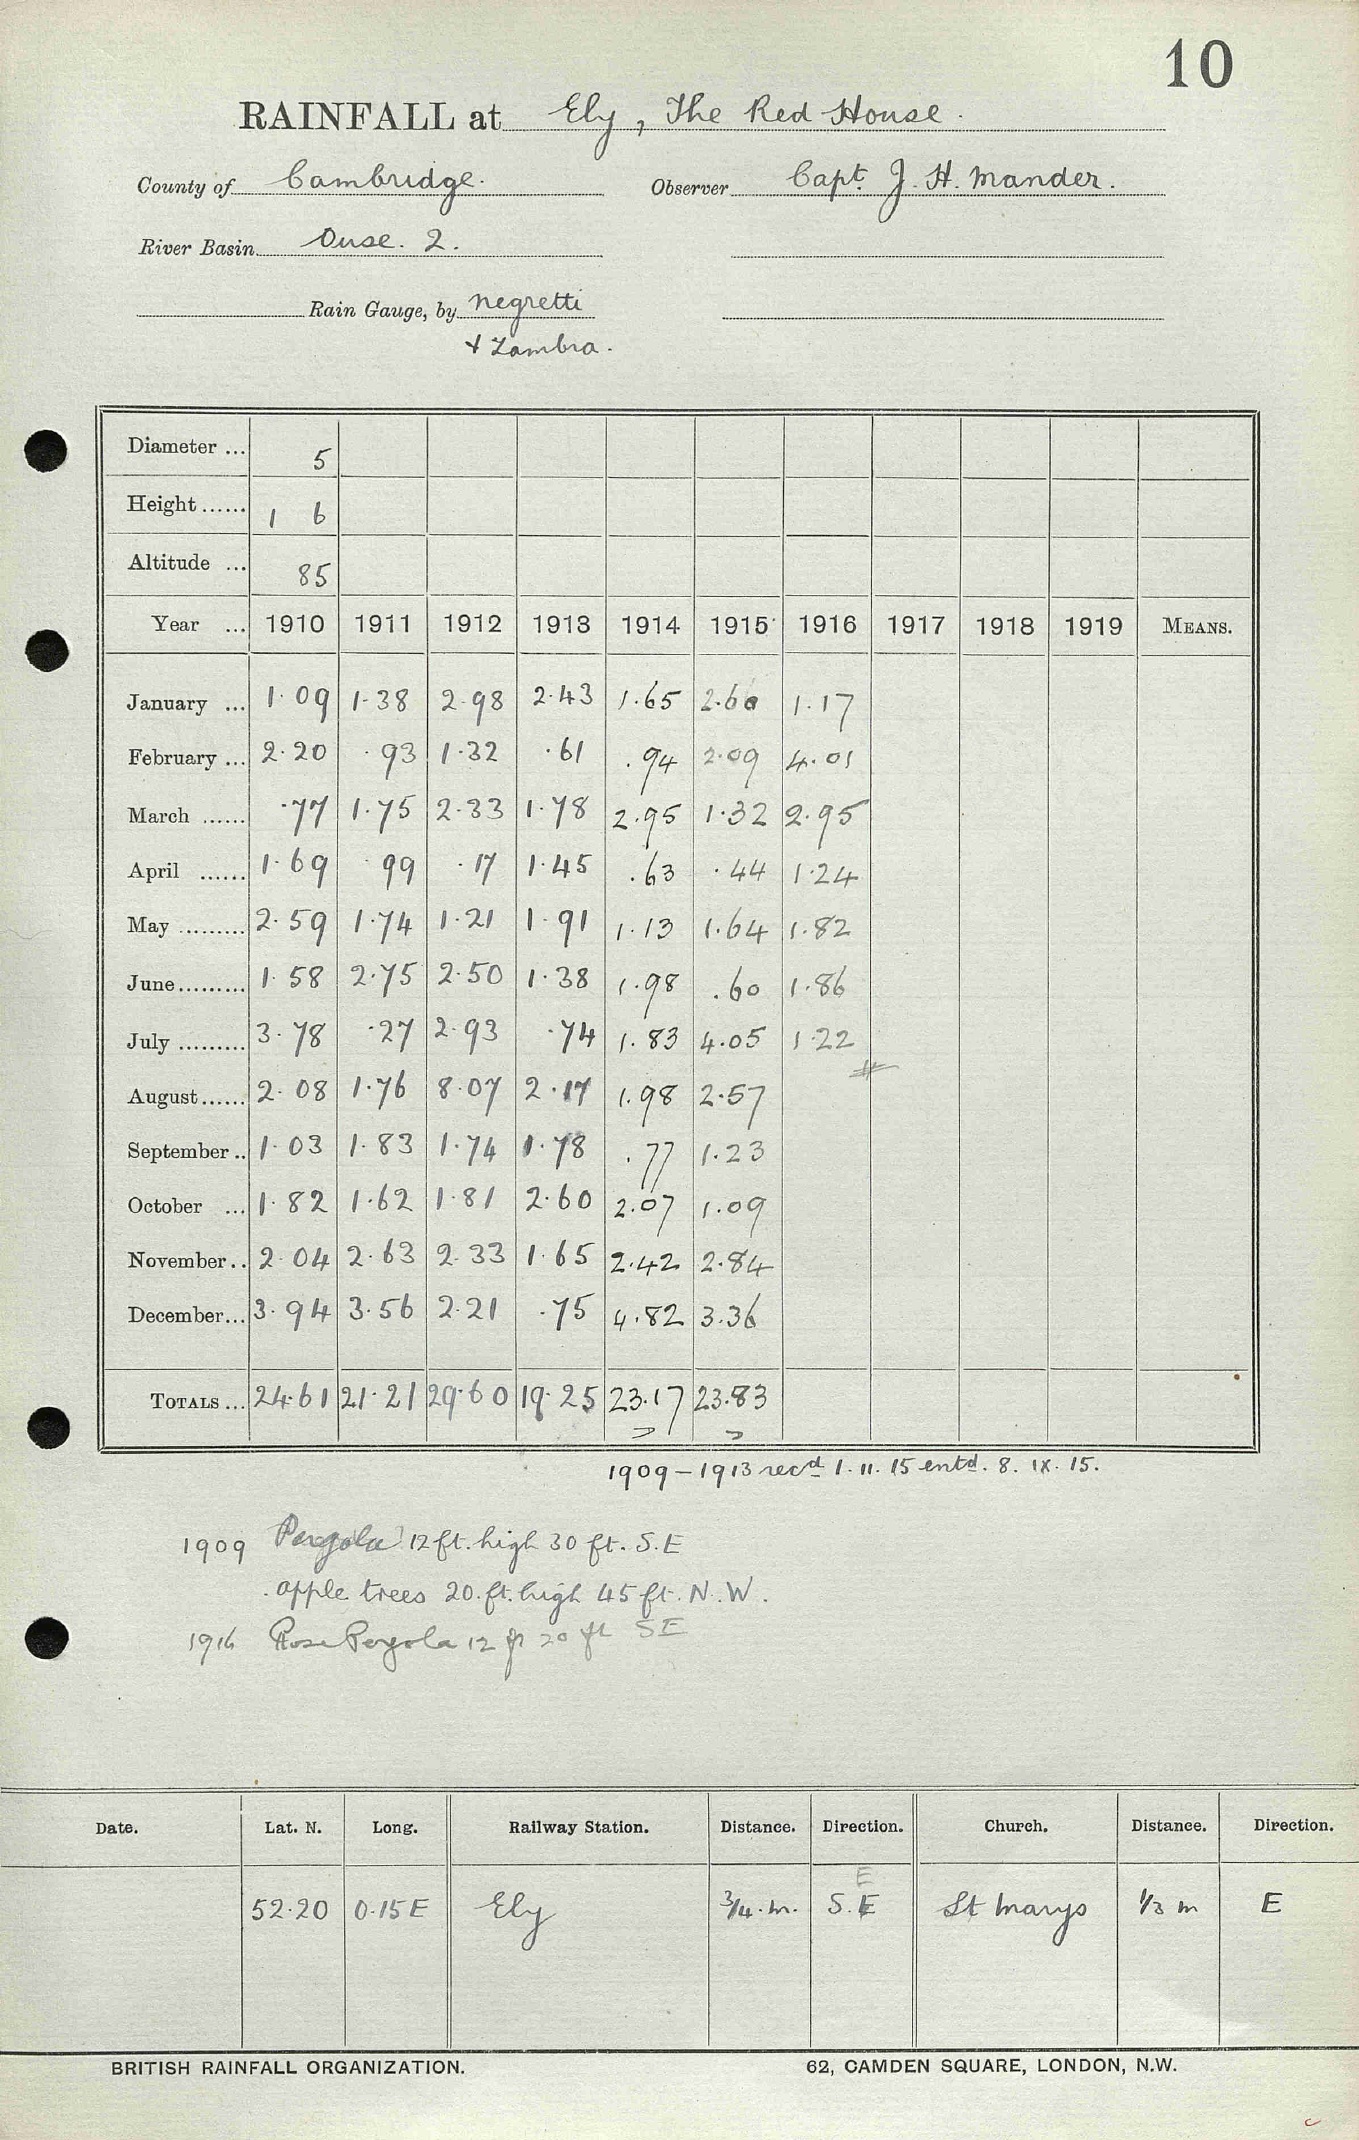 10
RAINFALL at Ely, The Red House.
County of Cambridge. Observer Capt. J. H. Mander.
River Basin Ouse. 2.
Rain Gauge, by Negretti
& Zambra.
Diameter ... 5
Height ...... 1 6
Altitude ... 85
Year ... 1910 1911 1912 1913 1914 1915 1916 1917 1918 1919 MEANS.
January ... 1.09 1.38 2.98 2.43 1.65 2.60 1.17
February ... 2.20 .93 1.32 .61 .94 2.09 4.01
March ...... .77 1.75 2.33 1.78 2.95 1.32 2.95
April ...... 1.69 .99 .17 1.45 .63 .44 1.24
May ......... 2.59 1.74 1.21 1.91 1.13 1.64 1.82
June ......... 1.58 2.75 2.50 1.38 1.98 .60 1.86
July ......... 3.78 .27 2.93 .74 1.83 4.05 1.22
August ...... 2.08 1.76 8.07 2.17 1.98 2.57
September .. 1.03 1.83 1.74 1.78 .77 1.23
October ... 1.82 1.62 1.81 2.60 2.07 1.09
November .. 2.04 2.63 2.33 1.65 2.42 2.84
December ... 3.94 3.56 2.21 .75 4.82 3.36
TOTALS ... 24.61 21.21 29.60 19.25 23.17 23.83
1909 – 1913 recd 1. 11. 15 entd. 8. IX. 15.
1909 Pergola 12 ft. high 30 ft. S.E
apple trees 20. ft. high 45 ft. N.W.
1916 Rose Pergola 12 ft 20 ft SE
Date. Lat. N. Long. Railway Station. Distance. Direction. Church. Distance. Direction.
E
52.20 0.15 E Ely 3/4 . m. S.E St Marys 1/3 m E
BRITISH RAINFALL ORGANIZATION. 62, CAMDEN SQUARE, LONDON, N.W.